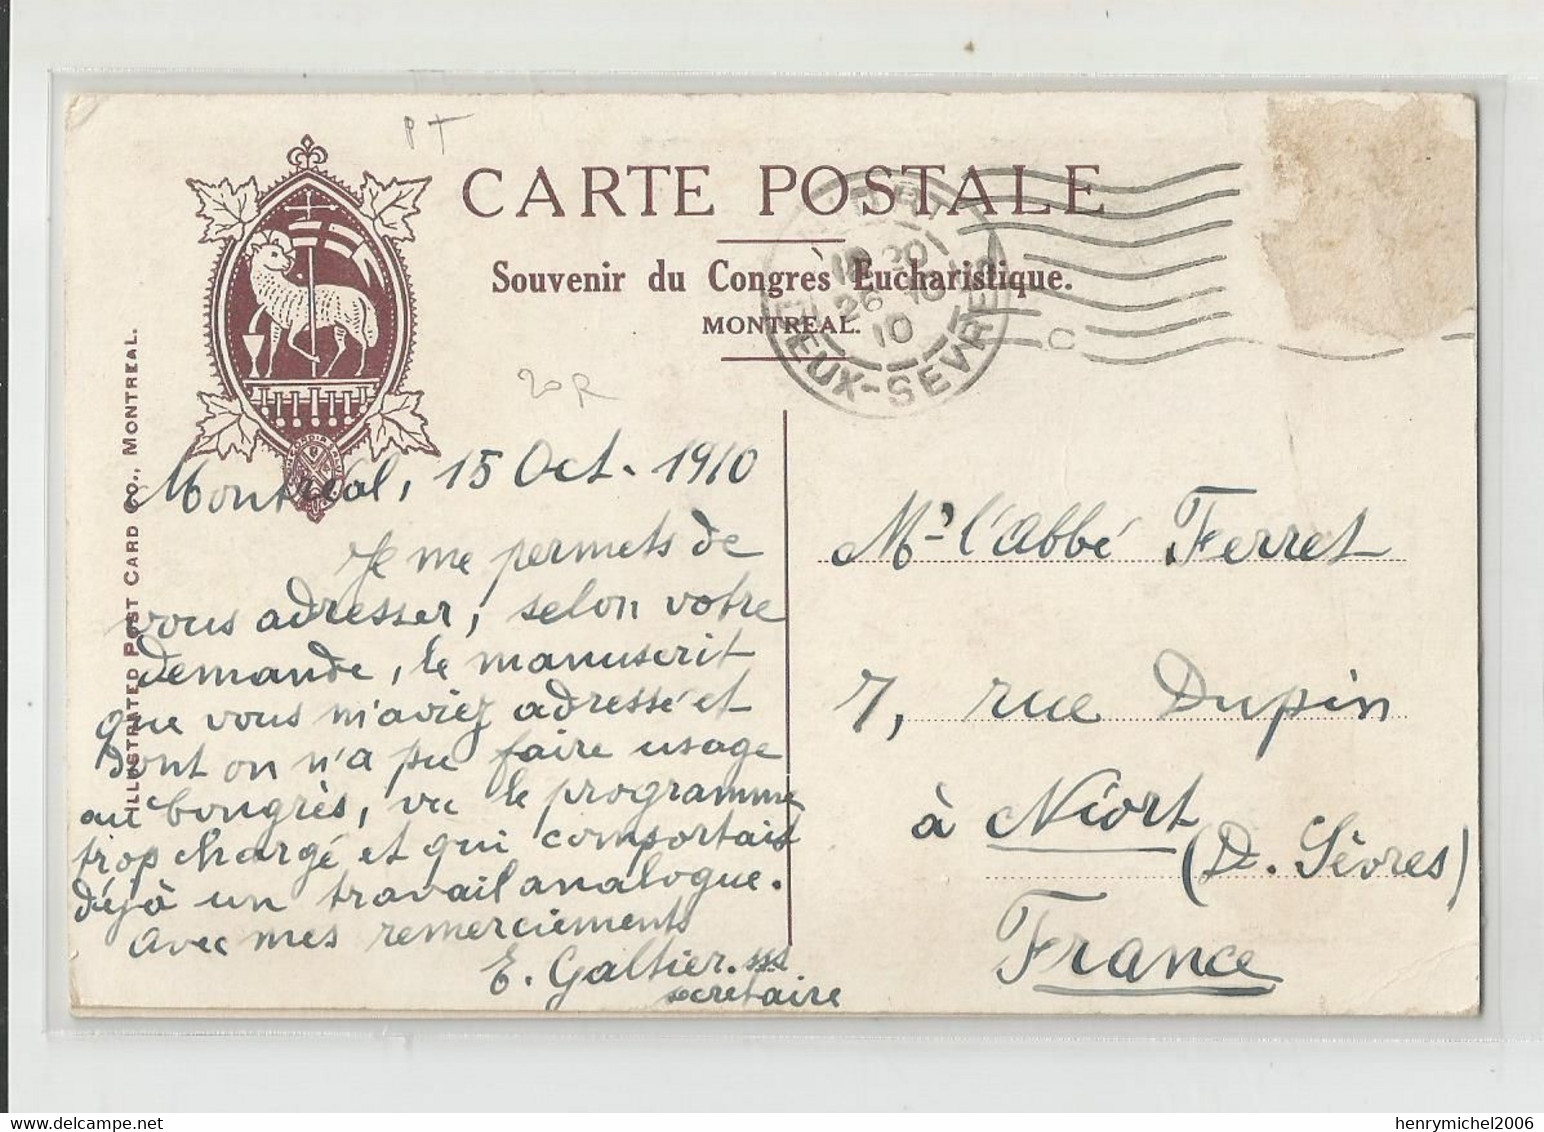 PT
CARTE POSTALE
Souvenir du Congrès Eucharistique.
MONTREAL.
18 30
26 10
10
DEUX-SEVRES
C
20R
ILLUSTRATED POST CARD CO., MONTREAL.
Montréal, 15 Oct. 1910
Je me permets de
vous adresser, selon votre
demande, le manuscrit
que vous m'aviez adressé et
dont on n'a pu faire usage
au Congrès, vu le programme
trop chargé et qui comportait
déjà un travail analogue.
Avec mes remerciements
E. Galtier. sss
secrétaire
Mr l'abbé Ferret
7, rue Dupin
à Niort
(D. Sèvres)
France
henrymichel2006